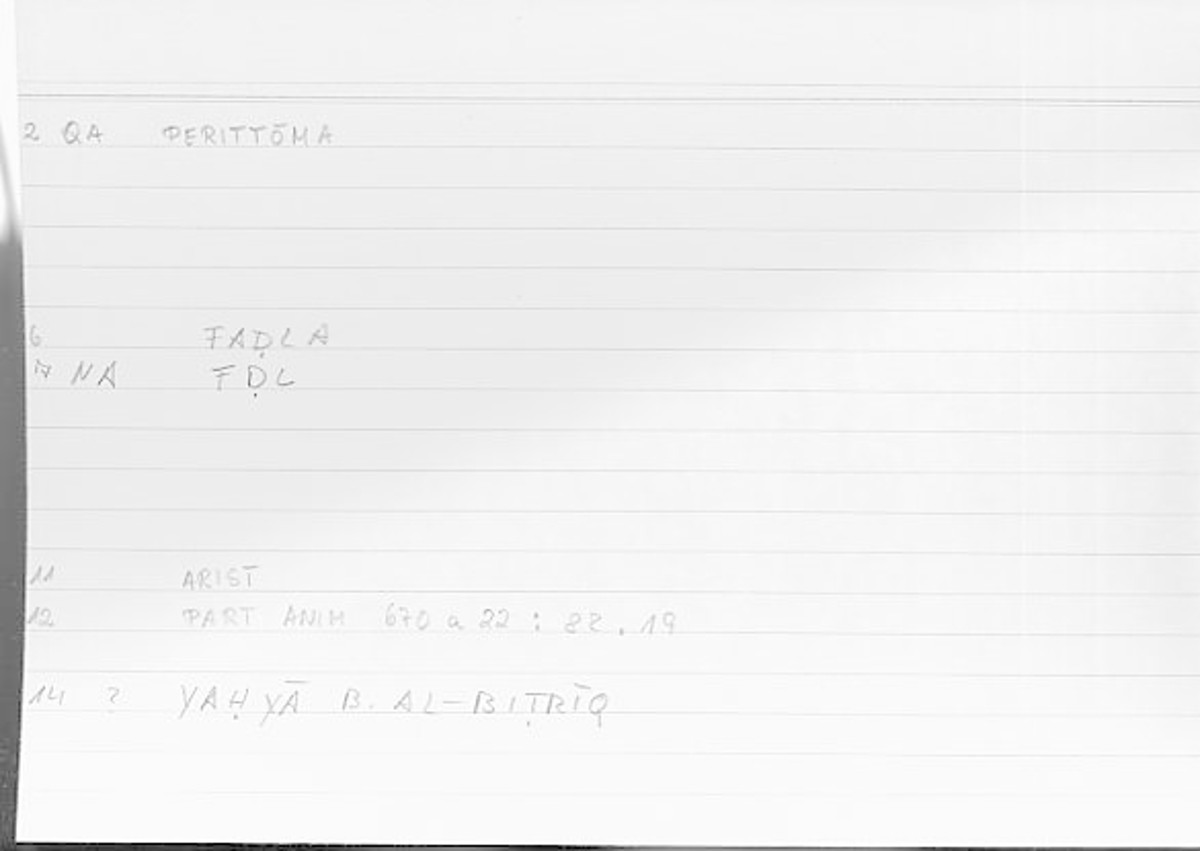 2 QA PERITTŌMA
6 FAḌLA
17 NA FḌL
11 ARIST
12 PART ANIM 670 a 22 : 82 . 19
14 ? YAḤYĀ B. AL-BIṬRĪQ